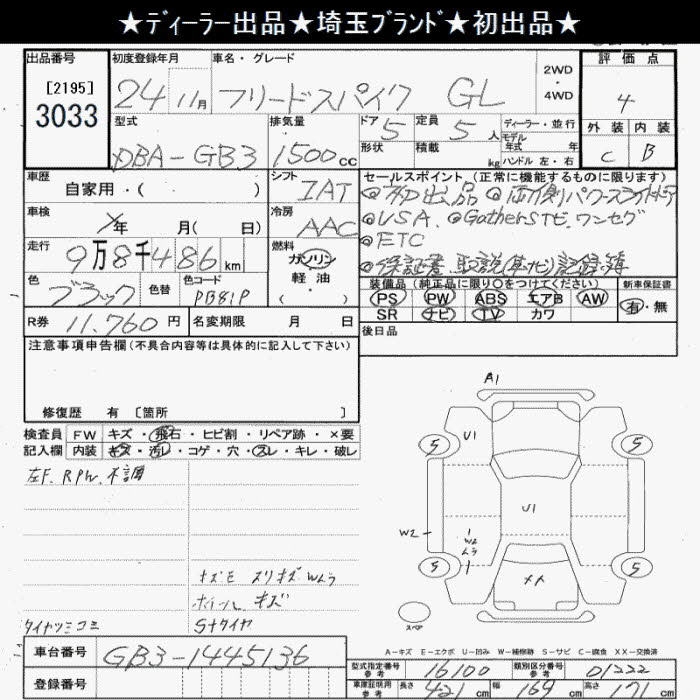 ★ディーラー出品★埼玉ブランド★初出品★
出品番号 初度登録年月 車名・グレード 2WD・4WD 評価点
[2195]
3033 24 11月 フリードスパイク GL 4
型式 排気量 ドア 5 定員 5 人 ディーラー・並行 外装 内装
DBA-GB3 1500cc 形状 積載 kg モデル年式 年 C B
ハンドル 左・右
車歴 シフト セールスポイント(正常に機能するものに限ります)
自家用・( ) IAT ◎初出品 ◎両側パワースライドドア
車検 冷房 ◎USA. ◎Gathers ナビ. ワンセグ
年 月( 日) AAC ◎ETC
走行 燃料 ◎保証書 取説(車・ナビ) 記録簿
9万8千486km ガソリン
軽油・
( )
色 色替 色コード 装備品(純正品に限り○をつけてください) 新車保証書
ブラック PB81P PS PW ABS エアB AW 有・無
SR ナビ TV カワ
R券 11.760円 名変期限 月 日 後日品
注意事項申告欄(不具合内容等は具体的に記入して下さい)
修復歴 有 [箇所 ]
検査員 FW キズ・飛石・ヒビ割・リペア跡・×要
記入欄 内装 キズ・汚レ・コゲ・穴・スレ・キレ・破レ
左F. RPh. 不調
キズモ スリキズ Wムラ
ホイール キズ
タイヤツミコミ Sタイヤ
A1
5 U1 5
U1
W2 1
W2
ムラ
5 1 5
XX
スペア
A-キズ E-エクボ U-凹み W-補修跡 S-サビ C-腐食 XX-交換済
車台番号 GB3-1445136
登録番号
型式指定番号 参考 16100 類別区分番号 参考 01222
車庫証明用 参考 長さ 421cm 幅 169cm 高さ 171cm